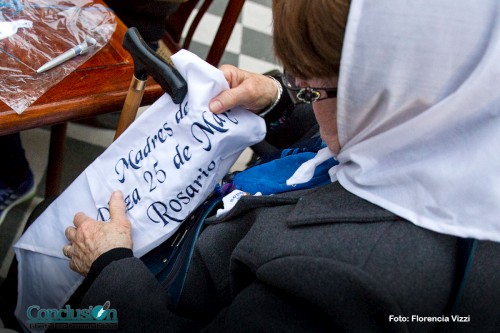 Madres de
Plaza 25 de May
Rosario
Conclusión
Foto: Florencia Vizzi